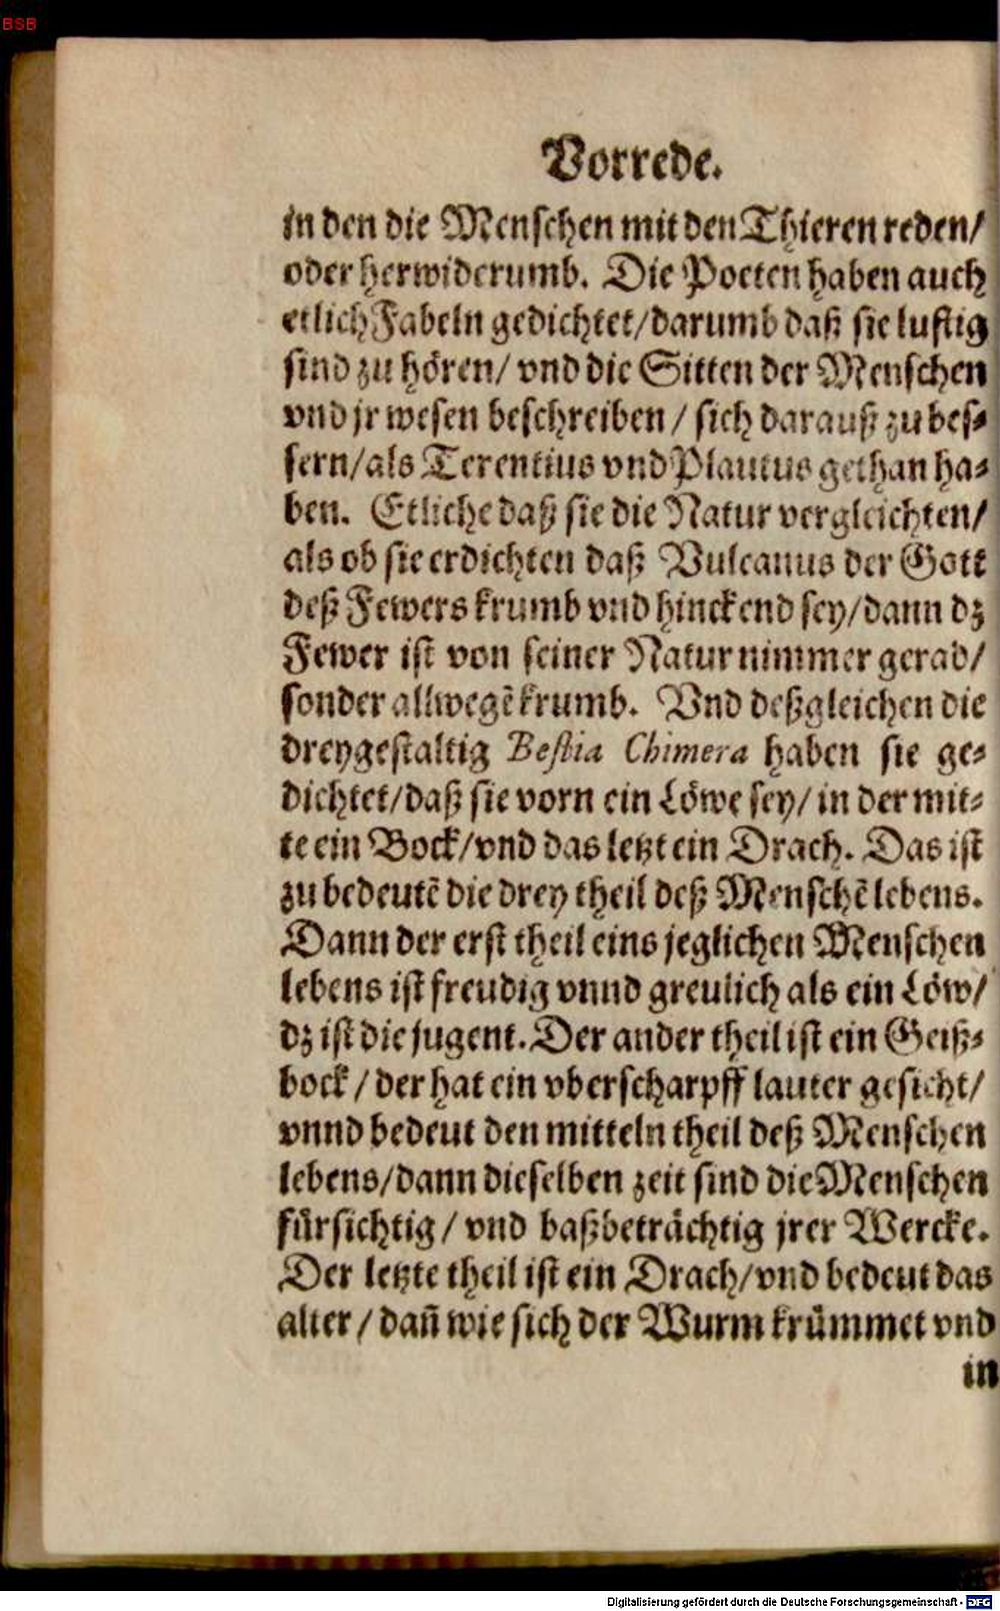 BSB
Vorrede.
in den die Menschen mit den Thieren reden/
oder herwiderumb. Die Poeten haben auch
etlich Fabeln gedichtet/darumb daß sie lustig
sind zu hören/ vnd die Sitten der Menschen
vnd jr wesen beschreiben / sich darauß zu bes⸗
sern/als Terentius vnd Plautus gethan ha⸗
ben. Etliche daß sie die Natur vergleichten/
als ob sie erdichten daß Vulcanus der Gott
deß Fewers krumb vnd hinckend sey/dann dz
Fewer ist von seiner Natur nimmer gerad/
sonder allwegẽ krumb. Vnd deßgleichen die
dreygestaltig Bestia Chimera haben sie ge⸗
dichtet/daß sie vorn ein Löwe sey/ in der mit⸗
te ein Bock/vnd das letzt ein Drach. Das ist
zu bedeutẽ die drey theil deß Menschẽ lebens.
Dann der erst theil eins jeglichen Menschen
lebens ist freudig vnnd greulich als ein Löw/
dz ist die jugent. Der ander theil ist ein Geiß⸗
bock / der hat ein vberscharpff lauter gesicht/
vnnd bedeut den mitteln theil deß Menschen
lebens/dann dieselben zeit sind die Menschen
fürsichtig / vnd baßbeträchtig jrer Wercke.
Der letzte theil ist ein Drach/vnd bedeut das
alter / dañ wie sich der Wurm krümmet vnd
in
Digitalisierung gefördert durch die Deutsche Forschungsgemeinschaft - DFG